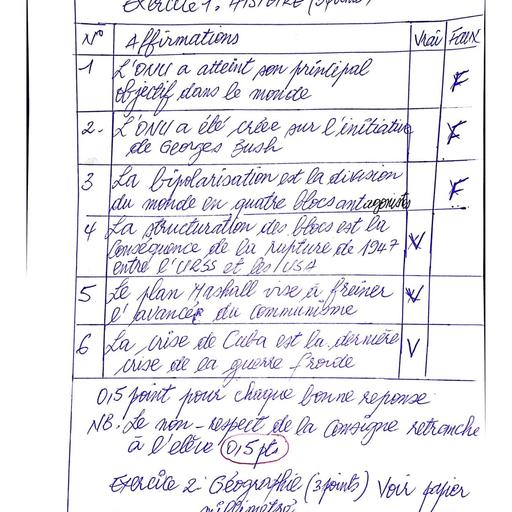 Exercice 1: HISTOIRE
N° Affirmations Vrai Faux
1 L'ONU a atteint son principal
objectif dans le monde F
2- L'ONU a été créée sur l'initiative
de Georges Bush F
3 La bipolarisation est la division
du monde en quatre blocs antagonistes F
4 La structuration des blocs est la
conséquence de la rupture de 1947 V
entre l'URSS et les USA
5 Le plan Mashall vise à freiner
l'avancée du communisme V
6 La crise de Cuba est la dernière
crise de la guerre froide V
0,5 point pour chaque bonne reponse
NB: Le non-respect de la consigne retranche
à l'elève 0,5 pts
Exercice 2: Géographie (3 points) Voir papier
millimetré